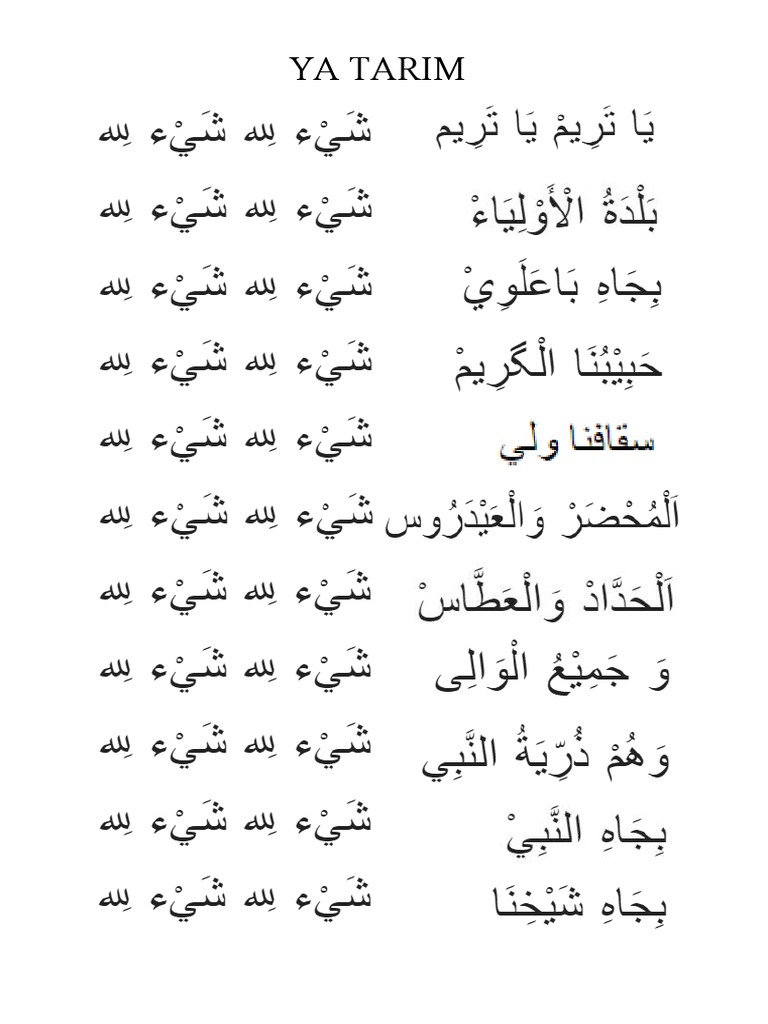 YA TARIM
يَا تَرِيمْ يَا تَرِيم شَيْء لِله شَيْء لِله
بَلْدَةُ الْأَوْلِيَاءْ شَيْء لِله شَيْء لِله
بِجَاهِ بَاعَلَوِيْ شَيْء لِله شَيْء لِله
حَبِيْبُنَا الْگرِيمْ شَيْء لِله شَيْء لِله
سقافنا ولي شَيْء لِله شَيْء لِله
اَلْمُحْضَرْ وَالْعَيْدَرُوس شَيْء لِله شَيْء لِله
اَلْحَدَّادْ وَالْعَطَّاسْ شَيْء لِله شَيْء لِله
وَ جَمِيْعُ الْوَالِى شَيْء لِله شَيْء لِله
وَهُمْ ذُرِّيَةُ النَّبِي شَيْء لِله شَيْء لِله
بِجَاهِ النَّبِيْ شَيْء لِله شَيْء لِله
بِجَاهِ شَيْخِنَا شَيْء لِله شَيْء لِله